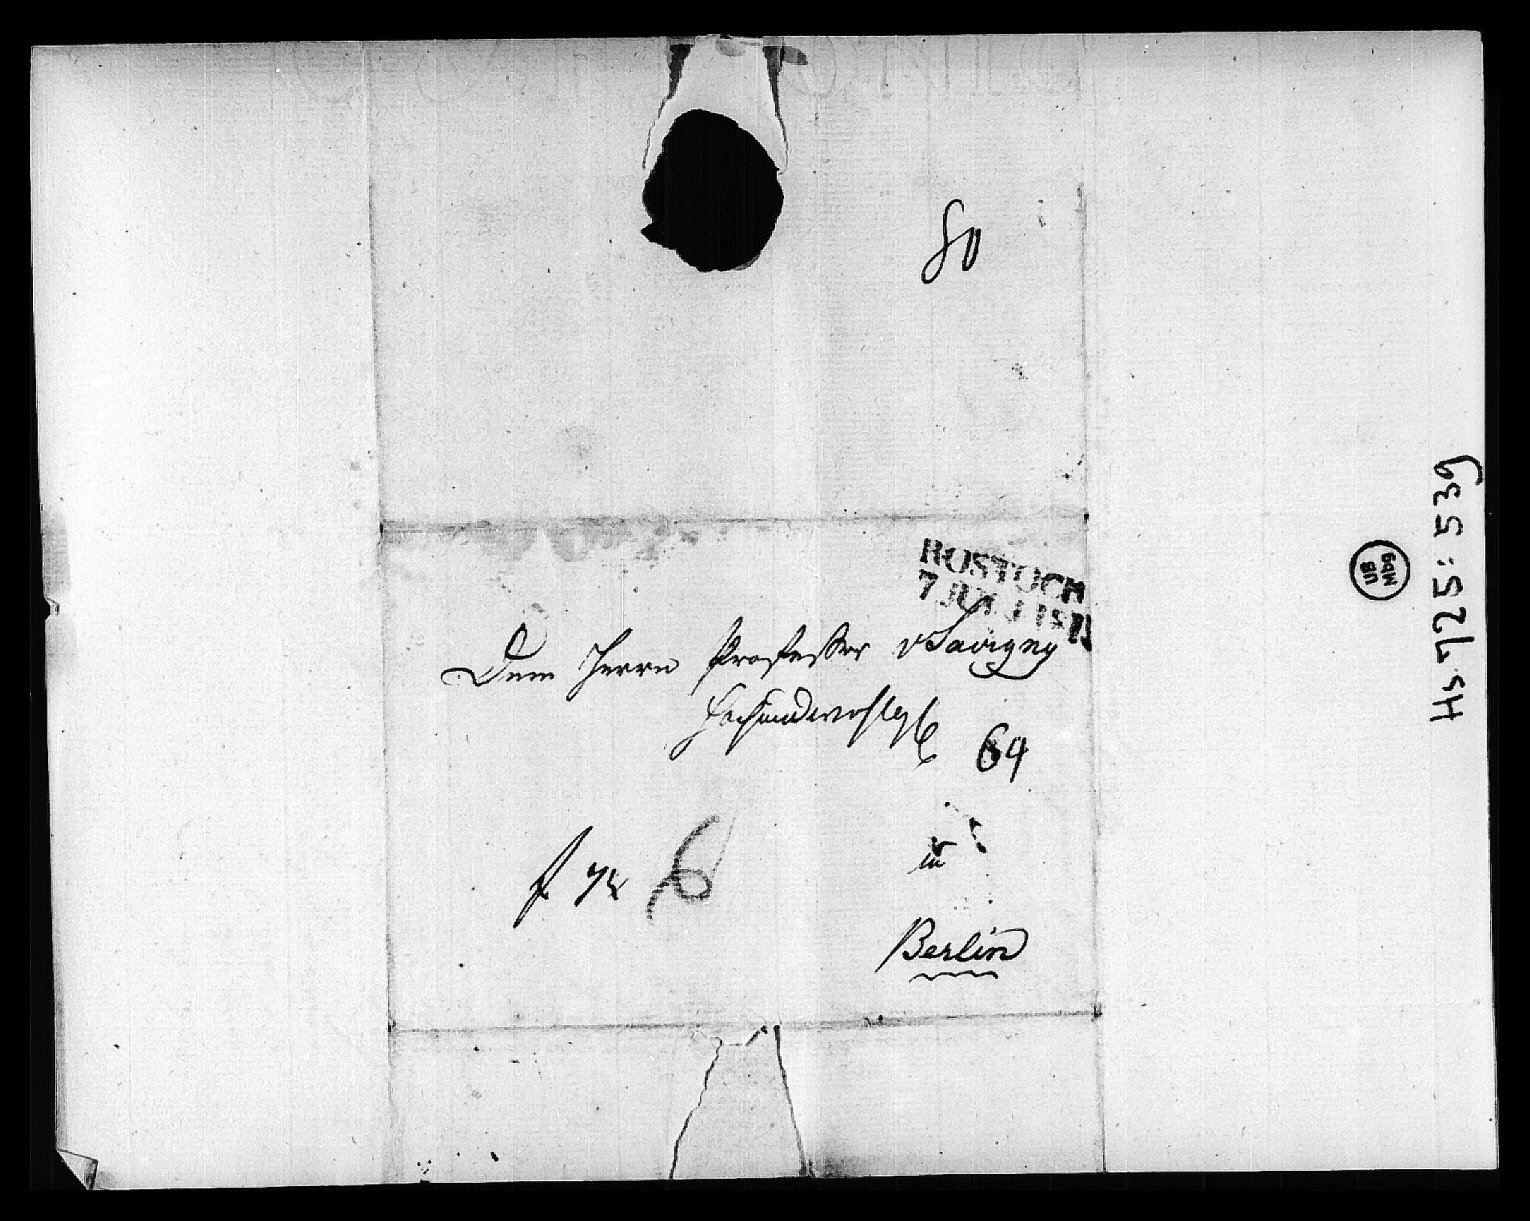 80
ROSTOCK
7 JUL
Dem Herrn Professor v Savigny
Hochwohlgeb
64
6
in
Berlin
Hs 725: 539
UB
Mbg